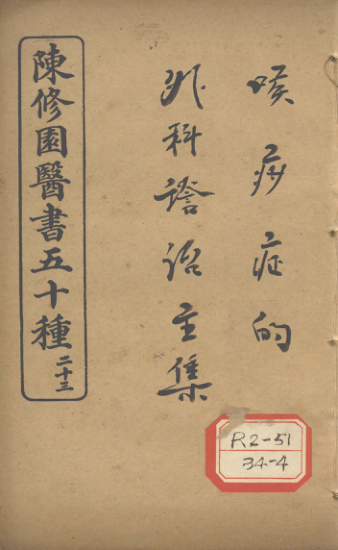 喉痧症的
外科證治全集
陳修園醫書五十種 二十三
R2-51
34-4